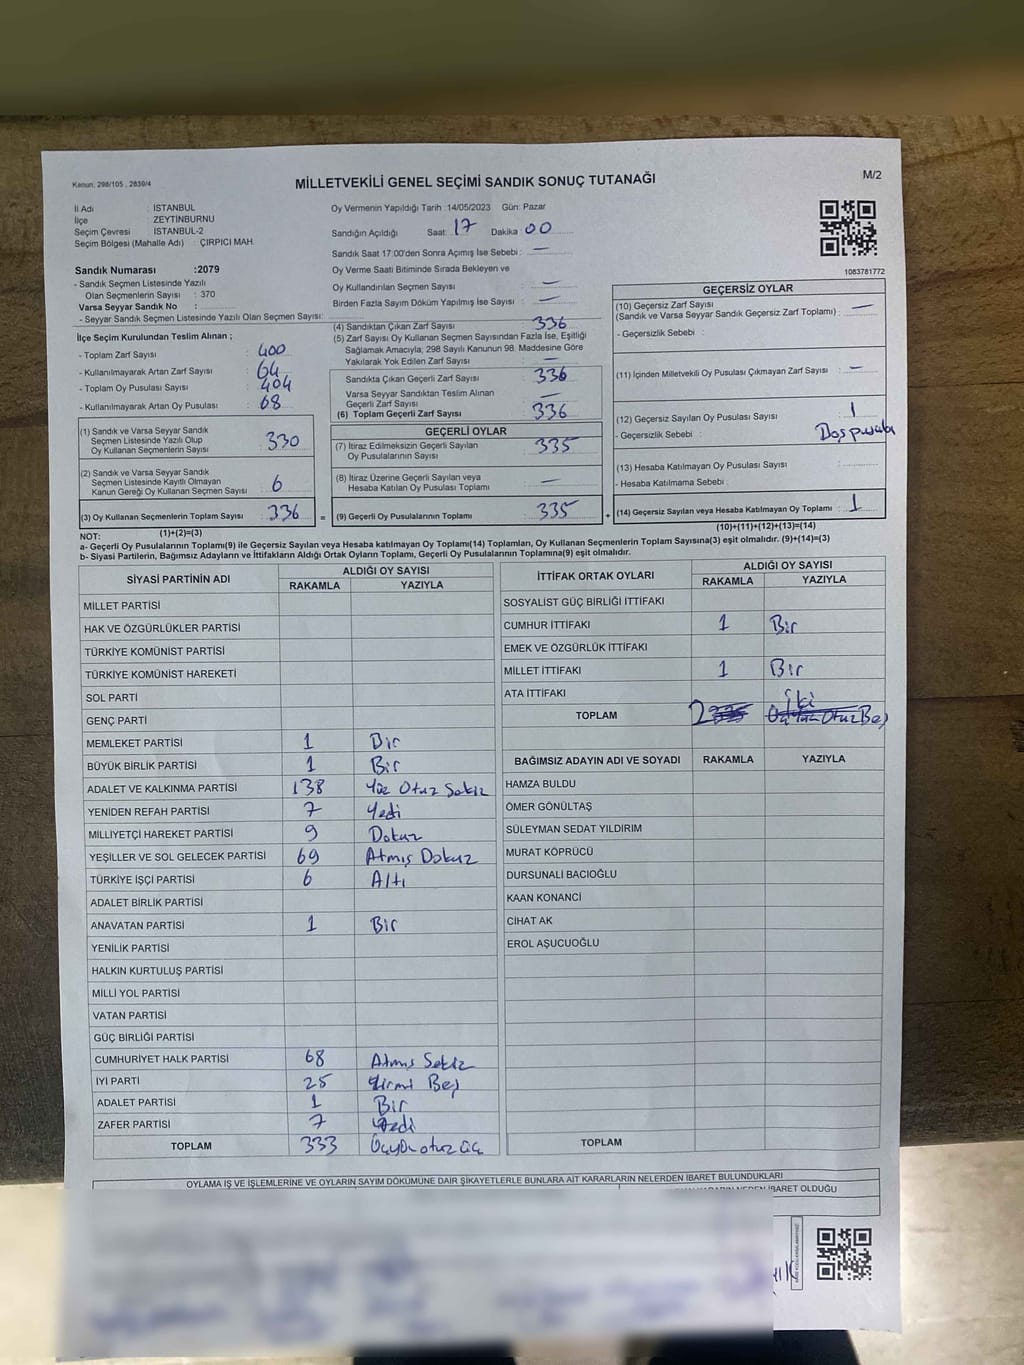 Kanun: 298/105 , 2839/4
MİLLETVEKİLİ GENEL SEÇİMİ SANDIK SONUÇ TUTANAĞI
M/2
İl Adı : İSTANBUL
İlçe ZEYTİNBURNU
Seçim Çevresi : İSTANBUL-2
Seçim Bölgesi (Mahalle Adı) : ÇIRPICI MAH.
Sandık Numarası :2079
- Sandık Seçmen Listesinde Yazılı
Olan Seçmenlerin Sayısı : 370
Varsa Seyyar Sandık No :
- Seyyar Sandık Seçmen Listesinde Yazılı Olan Seçmen Sayısı:
İlçe Seçim Kurulundan Teslim Alınan ;
- Toplam Zarf Sayısı : 400
- Kullanılmayarak Artan Zarf Sayısı : 64
- Toplam Oy Pusulası Sayısı : 404
- Kullanılmayarak Artan Oy Pusulası : 68
(1) Sandık ve Varsa Seyyar Sandık
Seçmen Listesinde Yazılı Olup
Oy Kullanan Seçmenlerin Sayısı : 330
(2) Sandık ve Varsa Seyyar Sandık
Seçmen Listesinde Kayıtlı Olmayan
Kanun Gereği Oy Kullanan Seçmen Sayısı : 6
(3) Oy Kullanan Seçmenlerin Toplam Sayısı : 336 =
(1)+(2)=(3)
Oy Vermenin Yapıldığı Tarih :14/05/2023 Gün: Pazar
Sandığın Açıldığı Saat: 17 Dakika: 00
Sandık Saat 17:00'den Sonra Açımış İse Sebebi : —
Oy Verme Saati Bitiminde Sırada Bekleyen ve
Oy Kullandırılan Seçmen Sayısı : —
Birden Fazla Sayım Döküm Yapılmış İse Sayısı : —
(4) Sandıktan Çıkan Zarf Sayısı : 336
(5) Zarf Sayısı Oy Kullanan Seçmen Sayısından Fazla İse, Eşitliği
Sağlamak Amacıyla, 298 Sayılı Kanunun 98. Maddesine Göre
Yakılarak Yok Edilen Zarf Sayısı : —
Sandıkta Çıkan Geçerli Zarf Sayısı : 336
Varsa Seyyar Sandıktan Teslim Alınan
Geçerli Zarf Sayısı : —
(6) Toplam Geçerli Zarf Sayısı : 336
GEÇERLİ OYLAR
(7) İtiraz Edilmeksizin Geçerli Sayılan
Oy Pusulalarının Sayısı : 335
(8) İtiraz Üzerine Geçerli Sayılan veya
Hesaba Katılan Oy Pusulası Toplamı : —
(9) Geçerli Oy Pusulalarının Toplamı : 335 +
1083781772
GEÇERSİZ OYLAR
(10) Geçersiz Zarf Sayısı
(Sandık ve Varsa Seyyar Sandık Geçersiz Zarf Toplamı) : —
- Geçersizlik Sebebi :
(11) İçinden Milletvekili Oy Pusulası Çıkmayan Zarf Sayısı : —
(12) Geçersiz Sayılan Oy Pusulası Sayısı : 1
- Geçersizlik Sebebi : Boş pusula
(13) Hesaba Katılmayan Oy Pusulası Sayısı :
- Hesaba Katılmama Sebebi :
(14) Geçersiz Sayılan veya Hesaba Katılmayan Oy Toplamı : 1
(10)+(11)+(12)+(13)=(14)
NOT:
a- Geçerli Oy Pusulalarının Toplamı(9) ile Geçersiz Sayılan veya Hesaba Katılmayan Oy Toplamı(14) Toplamları, Oy Kullanan Seçmenlerin Toplam Sayısına(3) eşit olmalıdır. (9)+(14)=(3)
b- Siyasi Partilerin, Bağımsız Adayların ve İttifakların Aldığı Ortak Oyların Toplamı, Geçerli Oy Pusulalarının Toplamına(9) eşit olmalıdır.
SİYASİ PARTİNİN ADI ALDIĞI OY SAYISI
RAKAMLA YAZIYLA
MİLLET PARTİSİ
HAK VE ÖZGÜRLÜKLER PARTİSİ
TÜRKİYE KOMÜNİST PARTİSİ
TÜRKİYE KOMÜNİST HAREKETİ
SOL PARTİ
GENÇ PARTİ
MEMLEKET PARTİSİ 1 Bir
BÜYÜK BİRLİK PARTİSİ 1 Bir
ADALET VE KALKINMA PARTİSİ 138 Yüz Otuz Sekiz
YENİDEN REFAH PARTİSİ 7 Yedi
MİLLİYETÇİ HAREKET PARTİSİ 9 Dokuz
YEŞİLLER VE SOL GELECEK PARTİSİ 69 Atmış Dokuz
TÜRKİYE İŞÇİ PARTİSİ 6 Altı
ADALET BİRLİK PARTİSİ
ANAVATAN PARTİSİ 1 Bir
YENİLİK PARTİSİ
HALKIN KURTULUŞ PARTİSİ
MİLLİ YOL PARTİSİ
VATAN PARTİSİ
GÜÇ BİRLİĞİ PARTİSİ
CUMHURİYET HALK PARTİSİ 68 Atmış Sekiz
İYİ PARTİ 25 Yirmi Beş
ADALET PARTİSİ 1 Bir
ZAFER PARTİSİ 7 Yedi
TOPLAM 333 Üçyüz otuz üç
İTTİFAK ORTAK OYLARI ALDIĞI OY SAYISI
RAKAMLA YAZIYLA
SOSYALİST GÜÇ BİRLİĞİ İTTİFAKI
CUMHUR İTTİFAKI 1 Bir
EMEK VE ÖZGÜRLÜK İTTİFAKI
MİLLET İTTİFAKI 1 Bir
ATA İTTİFAKI
TOPLAM 2 İki
BAĞIMSIZ ADAYIN ADI VE SOYADI RAKAMLA YAZIYLA
HAMZA BULDU
ÖMER GÖNÜLTAŞ
SÜLEYMAN SEDAT YILDIRIM
MURAT KÖPRÜCÜ
DURSUNALİ BACIOĞLU
KAAN KONANCİ
CİHAT AK
EROL AŞUCUOĞLU
TOPLAM
OYLAMA İŞ VE İŞLEMLERİNE VE OYLARIN SAYIM DÖKÜMÜNE DAİR ŞİKAYETLERLE BUNLARA AİT KARARLARIN NELERDEN İBARET BULUNDUKLARI
İBARET OLDUĞU